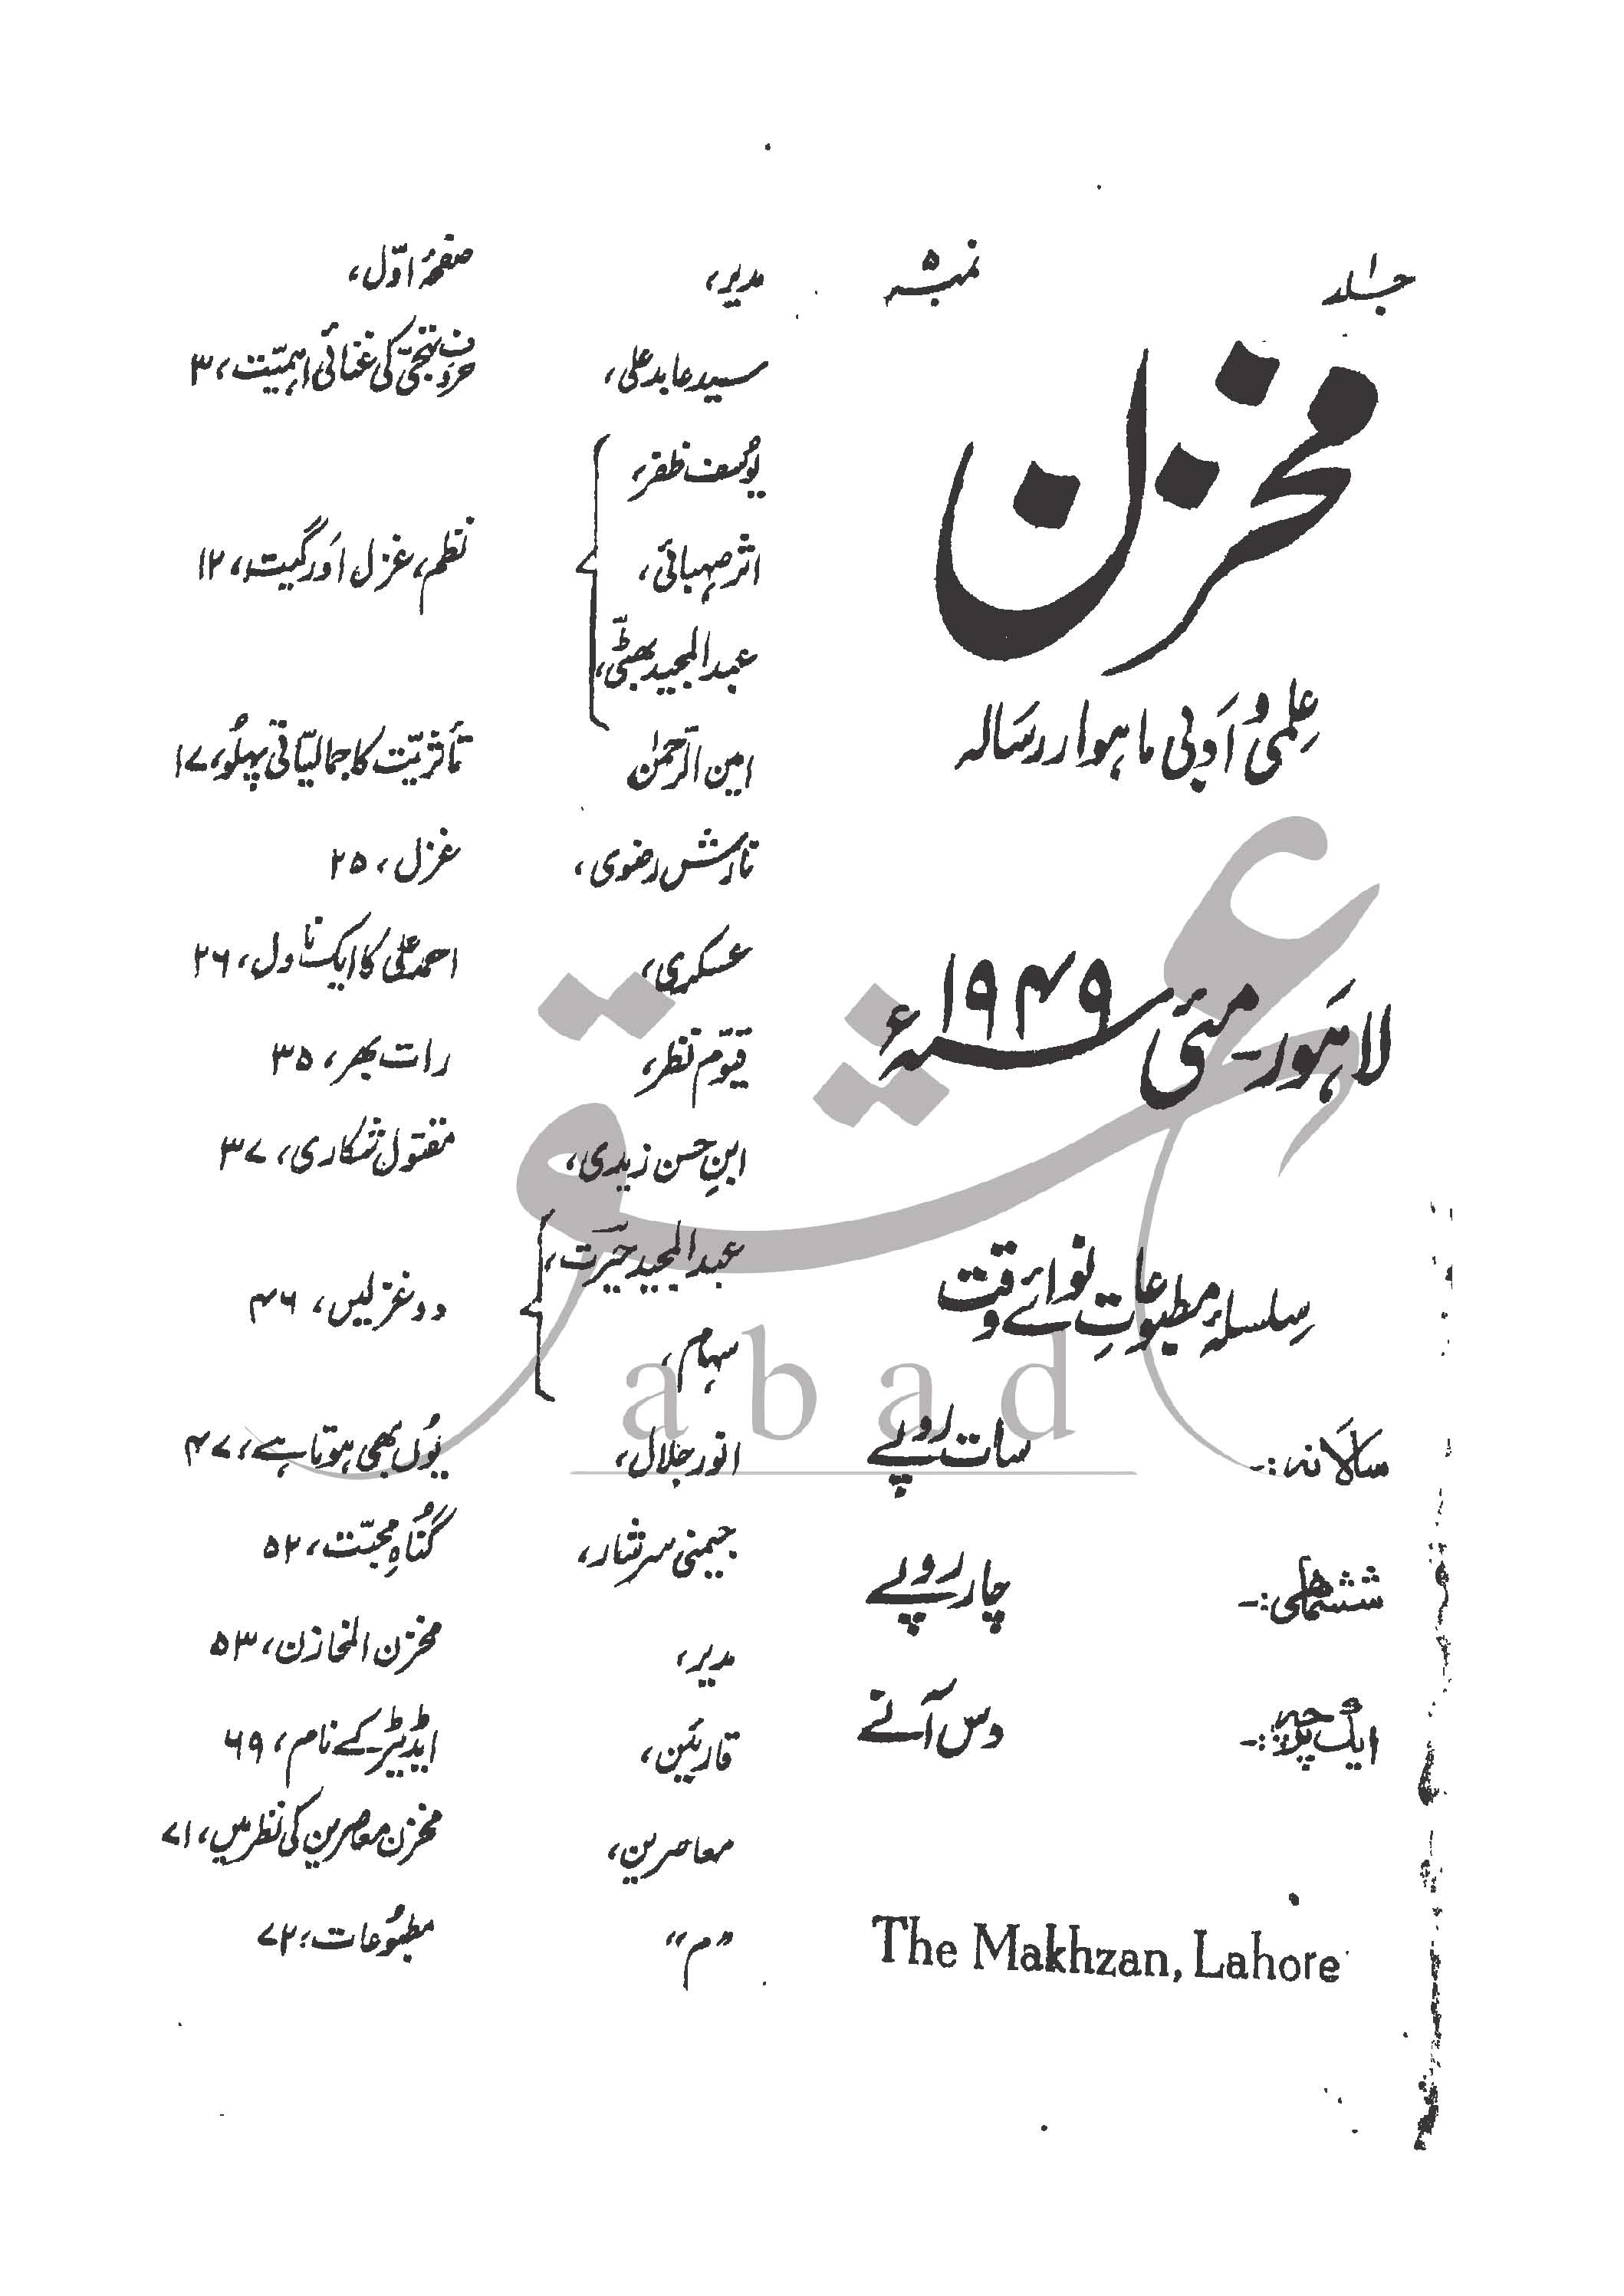 جلد ۱
نمبر ۵
مخزن
علمی و ادبی ماہوار رسالہ
لاہور۔ مئی ۱۹۴۹ء
سلسلۂ مطبوعاتِ نوائے وقت
سالانہ:- سات روپے
ششماہی:- چار روپے
ایک پرچہ:- دس آنے
The Makhzan, Lahore
مدیر، صفحۂ اوّل،
سید عابد علی، حروفِ تہجّی کی غنائی اہمیّت، ۳
یوسف ظفر،
اثر صہبائی، نظم، غزل اور گیت، ۱۲
عبدالمجید بھٹّی،
امین الرّحمٰن تأثریّت کا جمالیّاتی پہلُو، ۱۷
تارش رضوی، غزل، ۲۵
عسکری، احمد علی کا ایک ناول، ۲۶
قیّوم نظر، رات بھر، ۳۵
ابنِ حسن زیدی، مقتول شکاری، ۳۷
عبدالمجید حیرَت،
دو غزلیں، ۴۶
سہام،
انور جلال، یُوں بھی ہوتا ہے، ۴۷
جیمنی سرشار، گُناہِ محبّت، ۵۲
مدیر، مخزن المخازن، ۵۳
قارئین، ایڈیٹر کے نام، ۶۹
معاصرین، مخزن معاصرین کی نظر میں، ۷۱
"م" مطبُوعات، ۷۲
عشق
abad